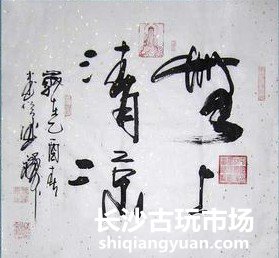 無上
清凉
歲在乙酉春
长沙古玩市场
shiqiangyuan.com